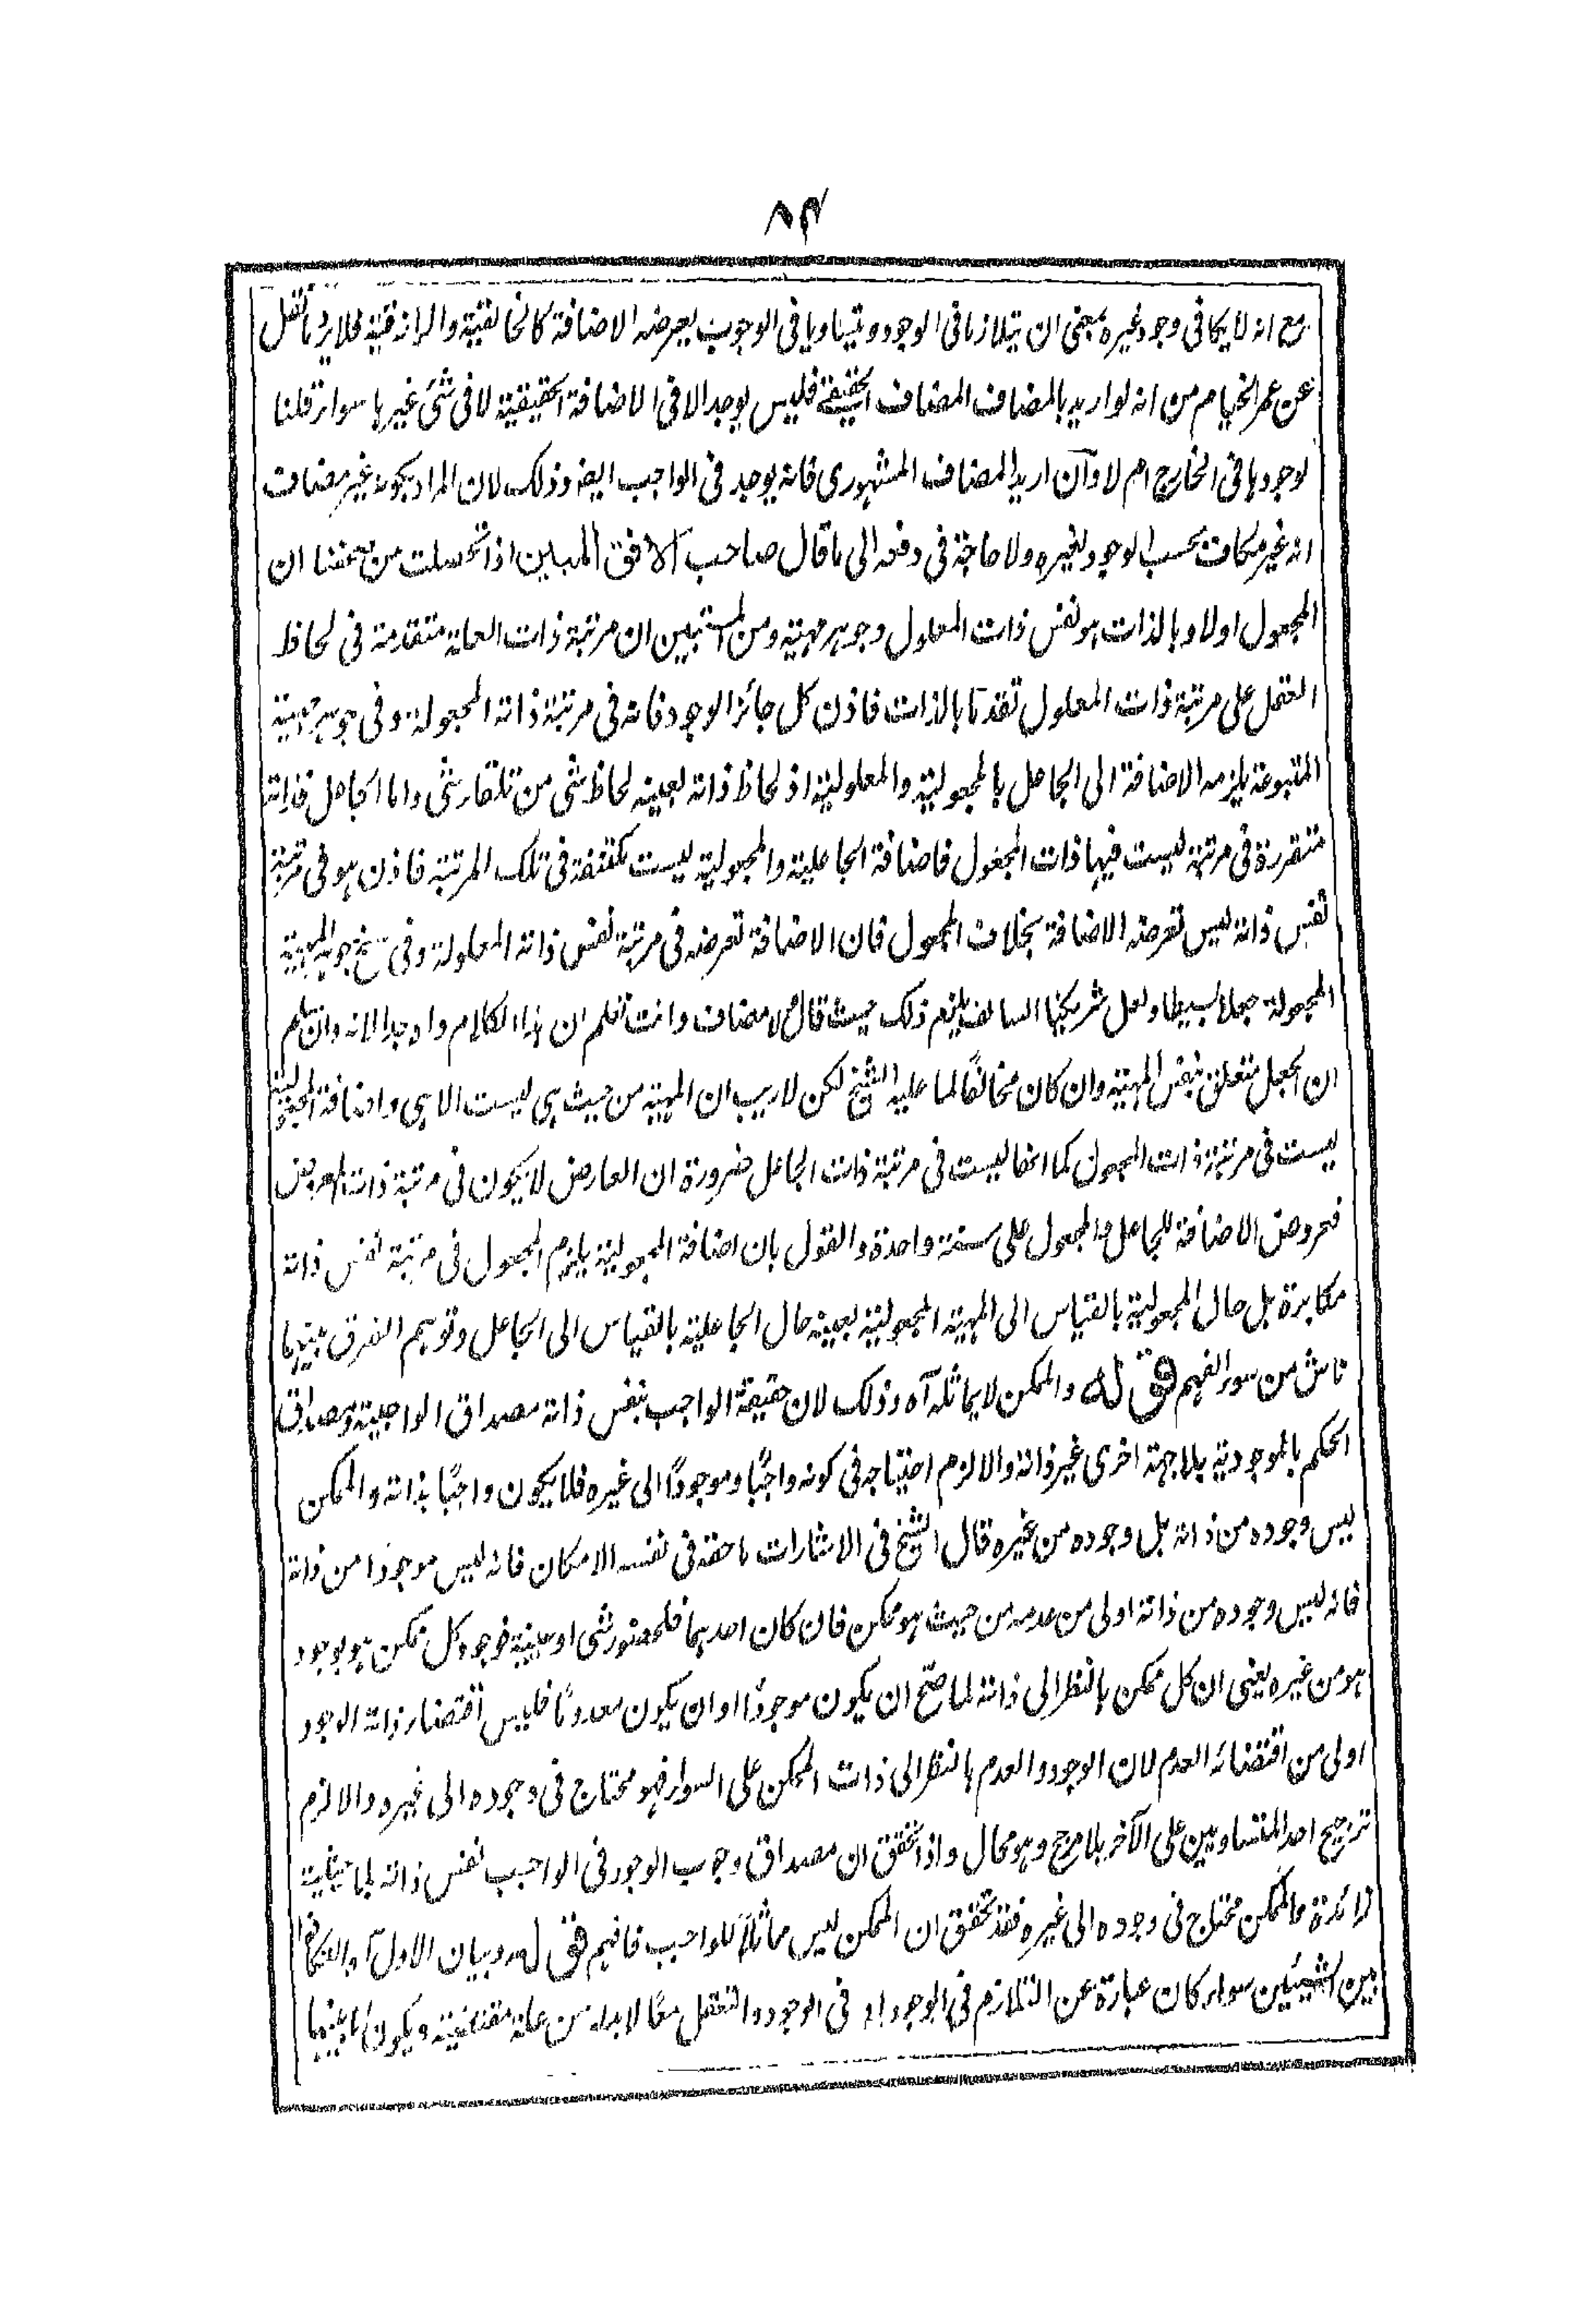 ٨٣
مع انه لا يكافى وجود غيره بمعنى ان يتلازما فى الوجود ويتساويا فى الوجوب يعرضه الاضافة كالخالقية والرازقية فلا يرد ما نقل
عن عمر الخيام من انه لو اريد بالمضاف المضاف الحقيقى فليس يوجد الا فى الاضافة الحقيقية لا فى شئ غيرها سواء قلنا
بوجودها فى الخارج ام لا وان اريد المضاف المشهورى فانه يوجد فى الواجب ايضا وذلك لان المراد بكونه غير مضاف
انه غير مكاف بحسب الوجود لغيره ولا حاجة فى دفعه الى ما قال صاحب الافق المبين اذا تحصلت من ان
المجعول اولا وبالذات هو نفس ذات المعلول وجوهر مهيته ومن المستبين ان مرتبة ذات العلة متقدمة فى لحاظ
العقل على مرتبة ذات المعلول تقدما بالذات فاذن كل جائز الوجود فانه فى مرتبة ذاته المجعولة وفى جوهر مهيته
المتبوعة يلزمه الاضافة الى الجاعل بالمجعولية والمعلولية اذ لحاظ ذاته بعينه لحاظ شئ من تلقاء شئ واما الجاعل فذاته
متقررة فى مرتبة ليست فيها ذات المجعول فاضافة الجاعلية والمجعولية ليست مكتنفة فى تلك المرتبة فاذن هو فى مرتبة
نفس ذاته ليس تعرضه الاضافة بخلاف المجعول فان الاضافة تعرضه فى مرتبة نفس ذاته المعلولة وفى سنخ جوهر المهية
المجعولة جعلا بسيطا ولعل شريكنا السالف يزعم ذلك حيث قال لا مضاف وانت تعلم ان هذا الكلام واه جدا لانه وان سلم
ان الجعل متعلق بنفس المهية وان كان مخالفا لما عليه الشيخ لكن لا ريب ان المهية من حيث هى ليست الا هى واضافة المجعولية
ليست فى مرتبة ذات المجعول كما انها ليست فى مرتبة ذات الجاعل ضرورة ان العارض لا يكون فى مرتبة ذات المعروض
فعروض الاضافة للجاعل والمجعول على سنة واحدة والقول بان اضافة المجعولية يلزم المجعول فى مرتبة نفس ذاته
مكابرة بل حال المجعولية بالقياس الى المهية المجعولية بعينه حال الجاعلية بالقياس الى الجاعل وتوهم الفرق بينهما
ناش من سوء الفهم قوله والممكن لا يماثله آه وذلك لان حقيقة الواجب بنفس ذاته مصداق الواجبية ومصداق
الحكم بالموجودية بلا جهة اخرى غير ذاته والا لزم احتياجه فى كونه واجبا وموجودا الى غيره فلا يكون واجبا بذاته والممكن
ليس وجوده من ذاته بل وجوده من غيره قال الشيخ فى الاشارات ما حقه فى نفسه الامكان فانه ليس موجودا من ذاته
فانه ليس وجوده من ذاته اولى من عدمه من حيث هو ممكن فان كان احدهما فلحضور شئ او غيبته فوجود كل ممكن هو بوجود
هو من غيره يعنى ان كل ممكن بالنظر الى ذاته لما صح ان يكون موجودا او ان يكون معدوما فليس اقتضاء ذاته الوجود
اولى من اقتضائه العدم لان الوجود والعدم بالنظر الى ذات الممكن على السواء فهو محتاج فى وجوده الى غيره والا لزم
ترجيح احد المتساويين على الآخر بلا مرجح وهو محال واذا تحقق ان مصداق وجوب الوجود فى الواجب نفس ذاته بلا حيثية
زائدة والممكن محتاج فى وجوده الى غيره فقد تحقق ان الممكن ليس مماثلا للواجب فافهم قوله وبيان الاول آه التكافؤ
بين الشيئين سواء كان عبارة عن التلازم فى الوجود او فى الوجود والتعقل معا لابد له من علة مقتضية ويكون